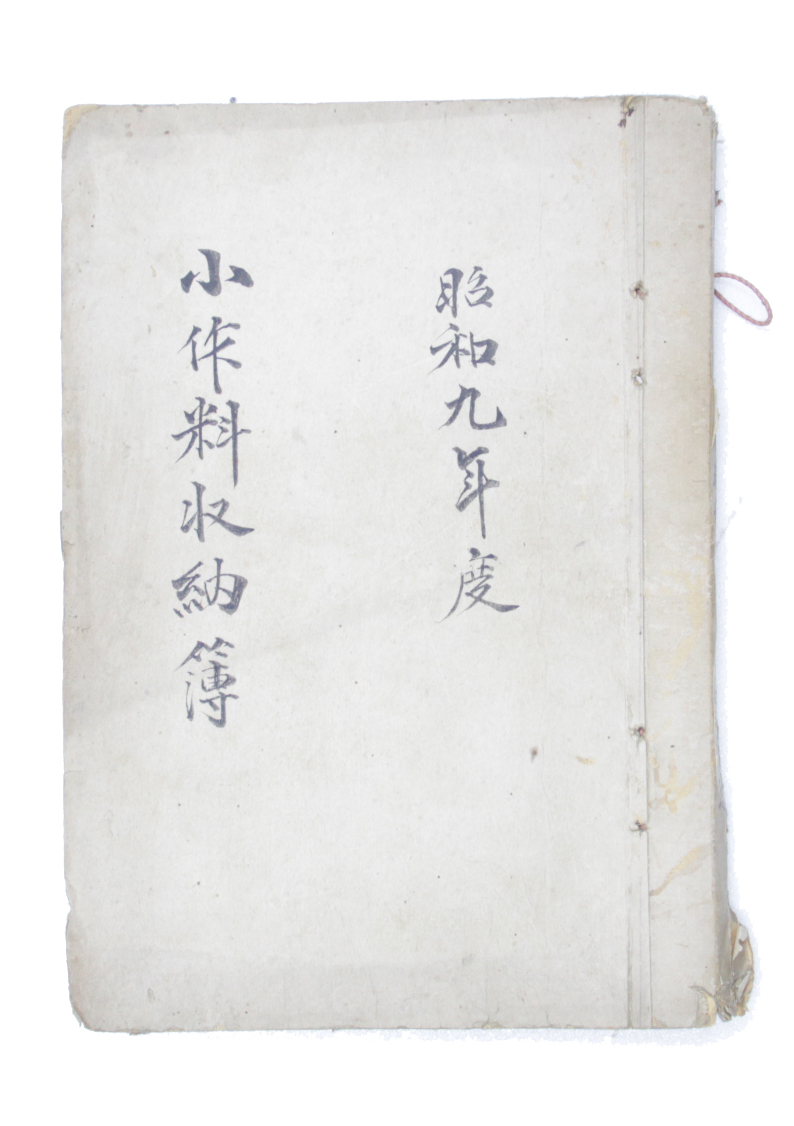 昭和九年度
小作料収納簿